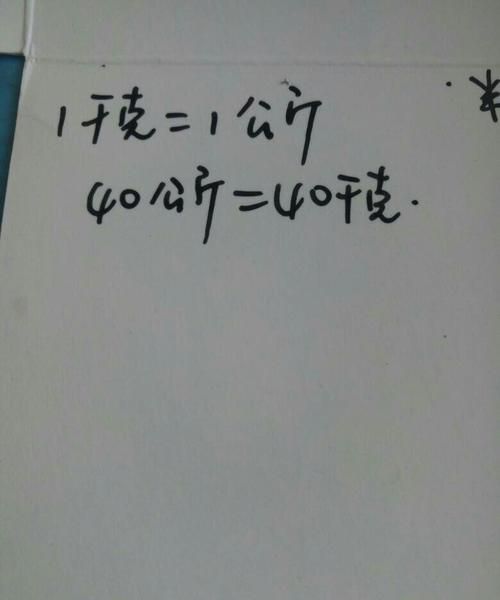 1千克=1公斤
40公斤=40千克.